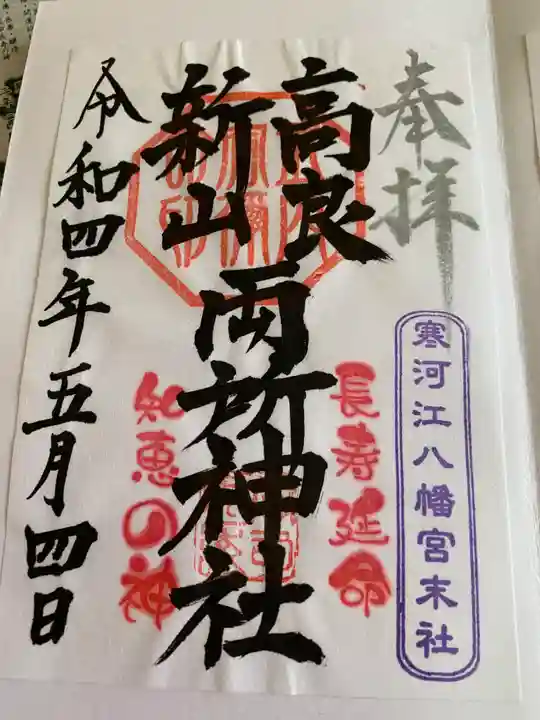 奉拝
寒河江八幡宮末社
高良
新山
両所神社
長寿延命
知恵の神
令和四年五月四日